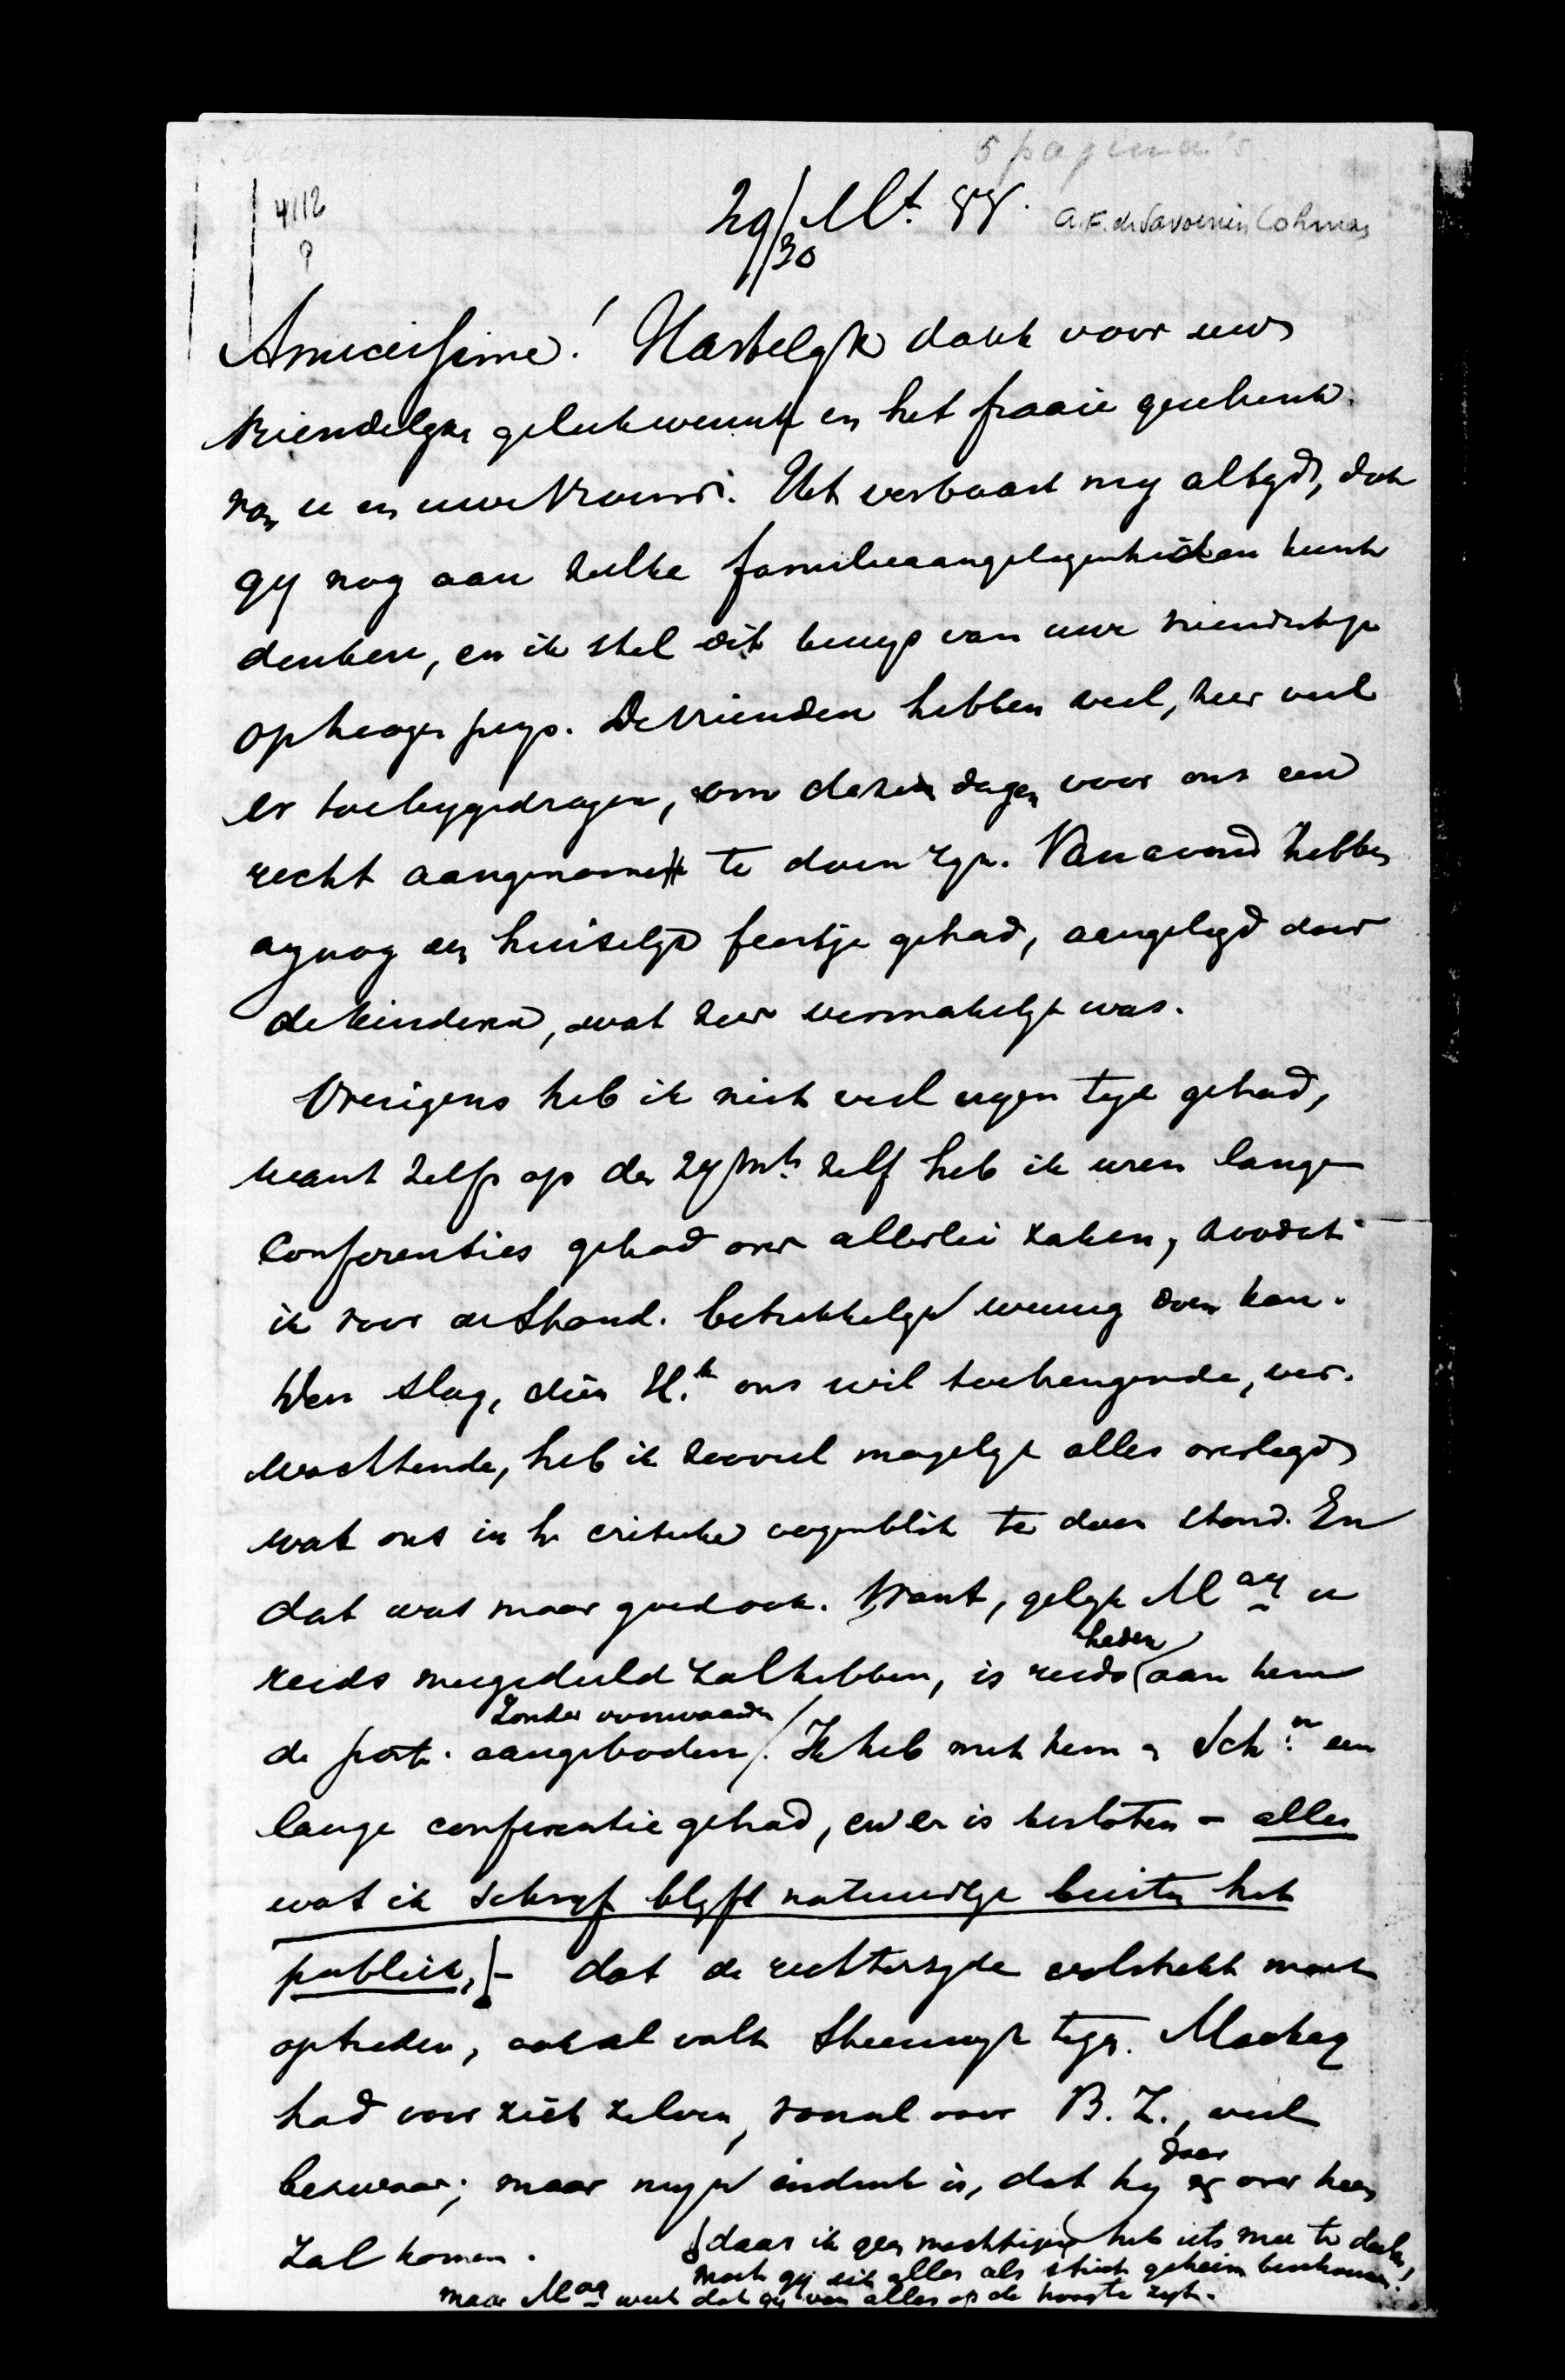 5 pagina's
4112
?
29/30 Mt 88. A.F. de Savornin Lohman
Amicissime! Hartelyk dank voor uw
vriendelyke gelukwensch en het fraaie geschenk
van u en uwe vrouw. Het verbaast my altyd, dat
gy nog aan zulke familieaangelegenheden kunt
denken, en ik stel dit bewys van uwe vriendschap
op hoogen prys. De vrienden hebben veel, zeer veel
er toe bygedragen, om dezen dagen voor ons een
recht aangename te doen zyn. Van avond hebben
wy nog een huiselyk feestje gehad, aangelegd door
de kinderen, wat zeer vermakelyk was.
Overigens heb ik niet veel eigen tyd gehad,
want zelfs op den 29 Mt. zelf heb ik uren lange
conferenties gehad over allerlei zaken, zoodat
ik voor de Stand. betrekkelyk weinig doen kan.
Den slag, dien H.k ons wil toebrengende, ver-
wachtende, heb ik zooveel mogelyk alles overlegd
wat ons in h. critieke oogenblik te doen stond. En
dat was maar goed ook. Want, gelyk M ay u
reeds meegedeeld zal hebben, is reeds heden aan hem
de port. aangeboden zonder voorwaarden. Ik heb met hem en Sch.n een
lange conferentie gehad, en er is besloten - alles
wat ik schryf blyft natuurlyk buiten het
publiek, - dat de rechterzyde volstrekt moet
optreden, ook al valt Steenwyk tegen. Mackay
had voor zich zelven, vooral voor B. Z., veel
bezwaar; maar myn indruk is, dat hy daar over heen
zal komen.
daar ik geen machtiging heb iets mee te deelen,
moet gy dit alles als strict geheim beschouwen!
maar M ay weet dat gy van alles op de hoogte zyt.